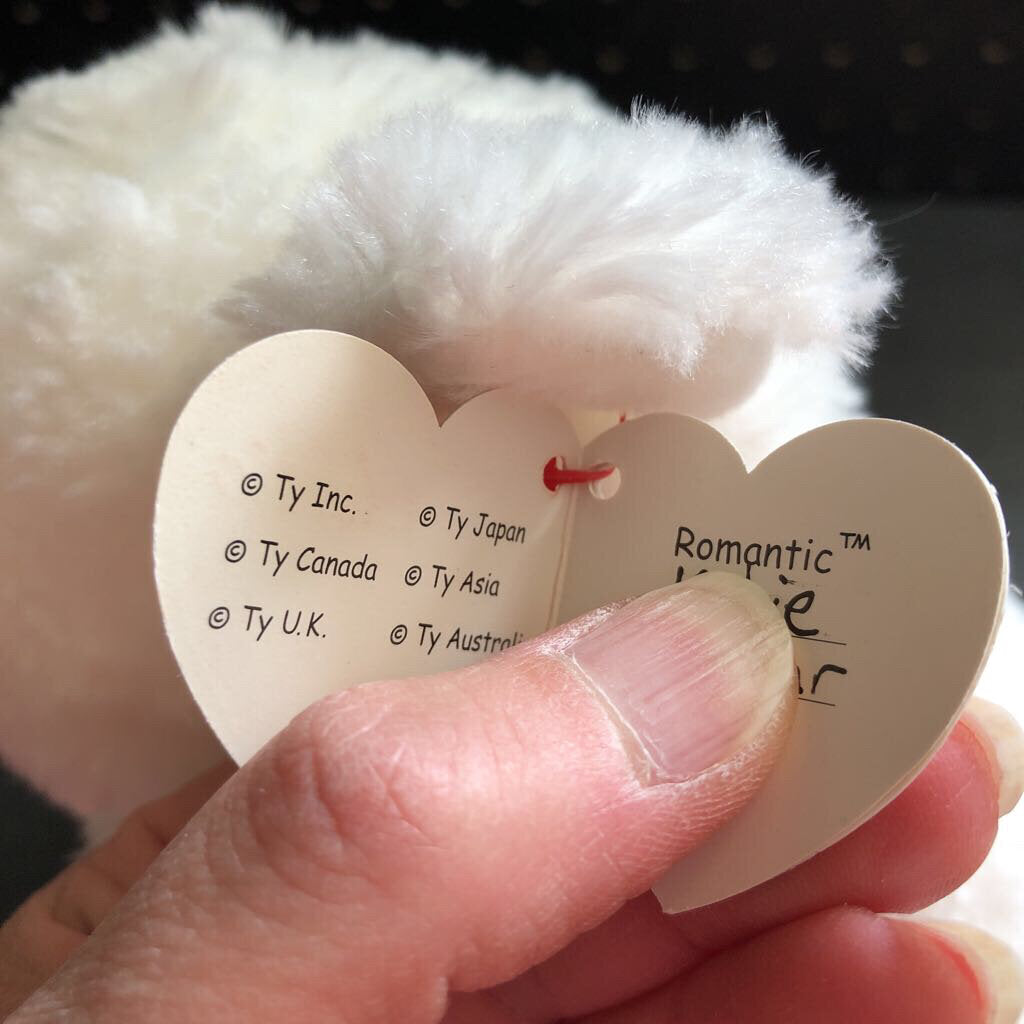 © Ty Inc.
© Ty Canada
© Ty U.K.
© Ty Japan
© Ty Asia
© Ty Australi
Romantic™